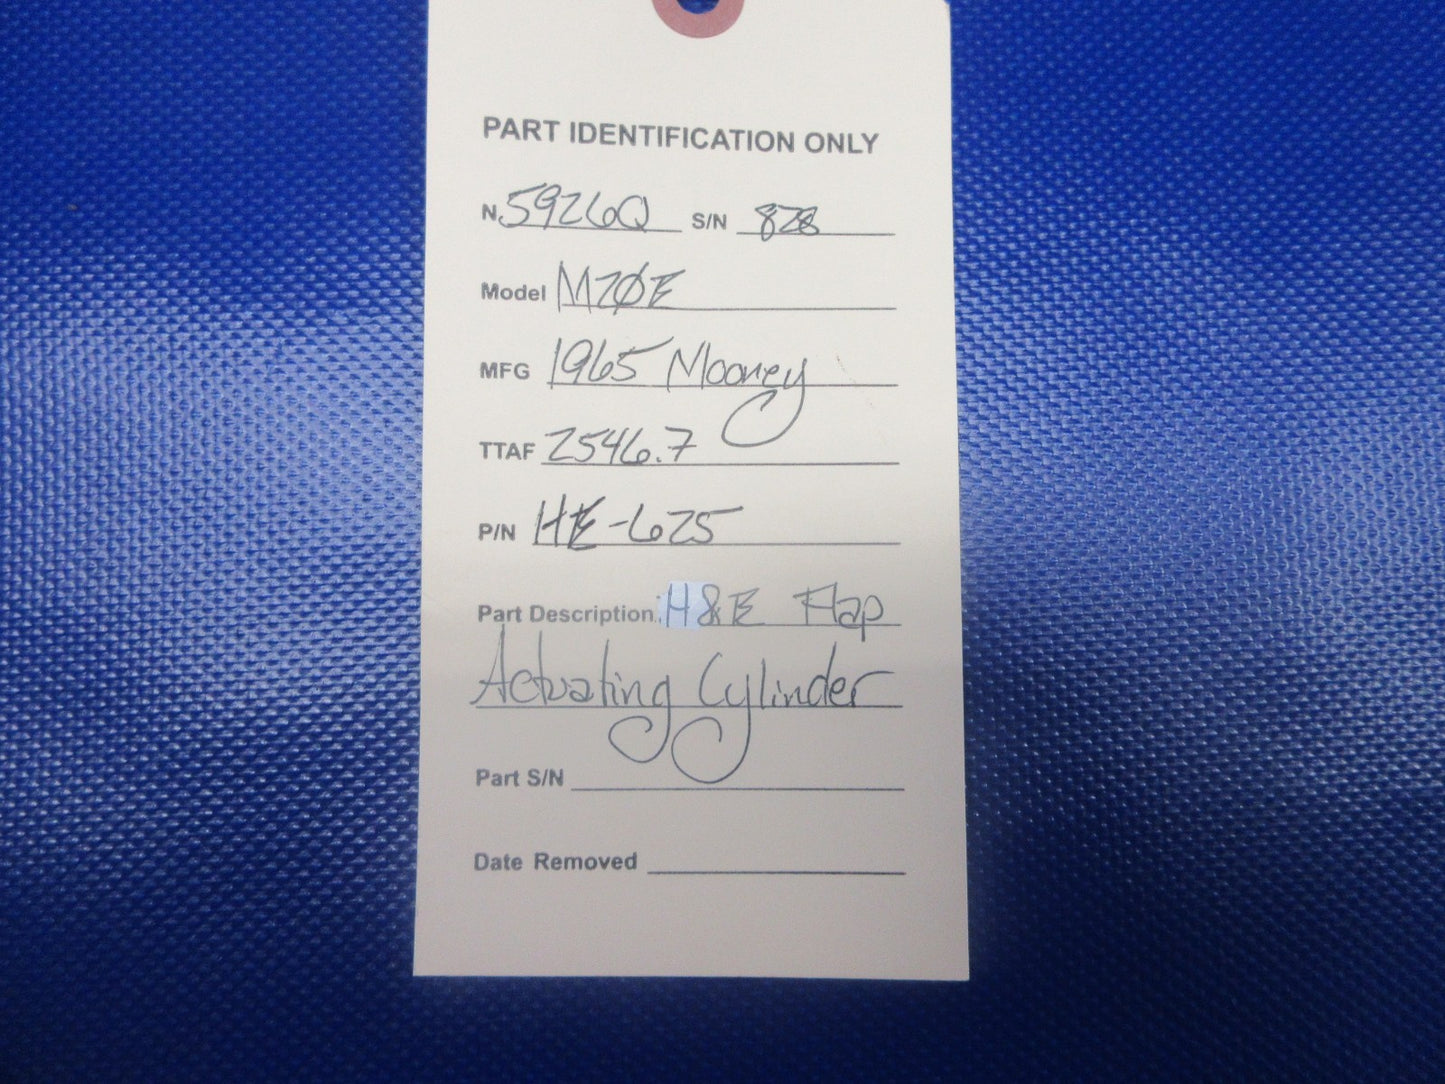 PART IDENTIFICATION ONLY
N. 5926Q S/N 828
Model M20E
MFG 1965 Mooney
TTAF 2546.7
P/N HE-625
Part Description. H&E Flap
Actuating Cylinder
Part S/N
Date Removed